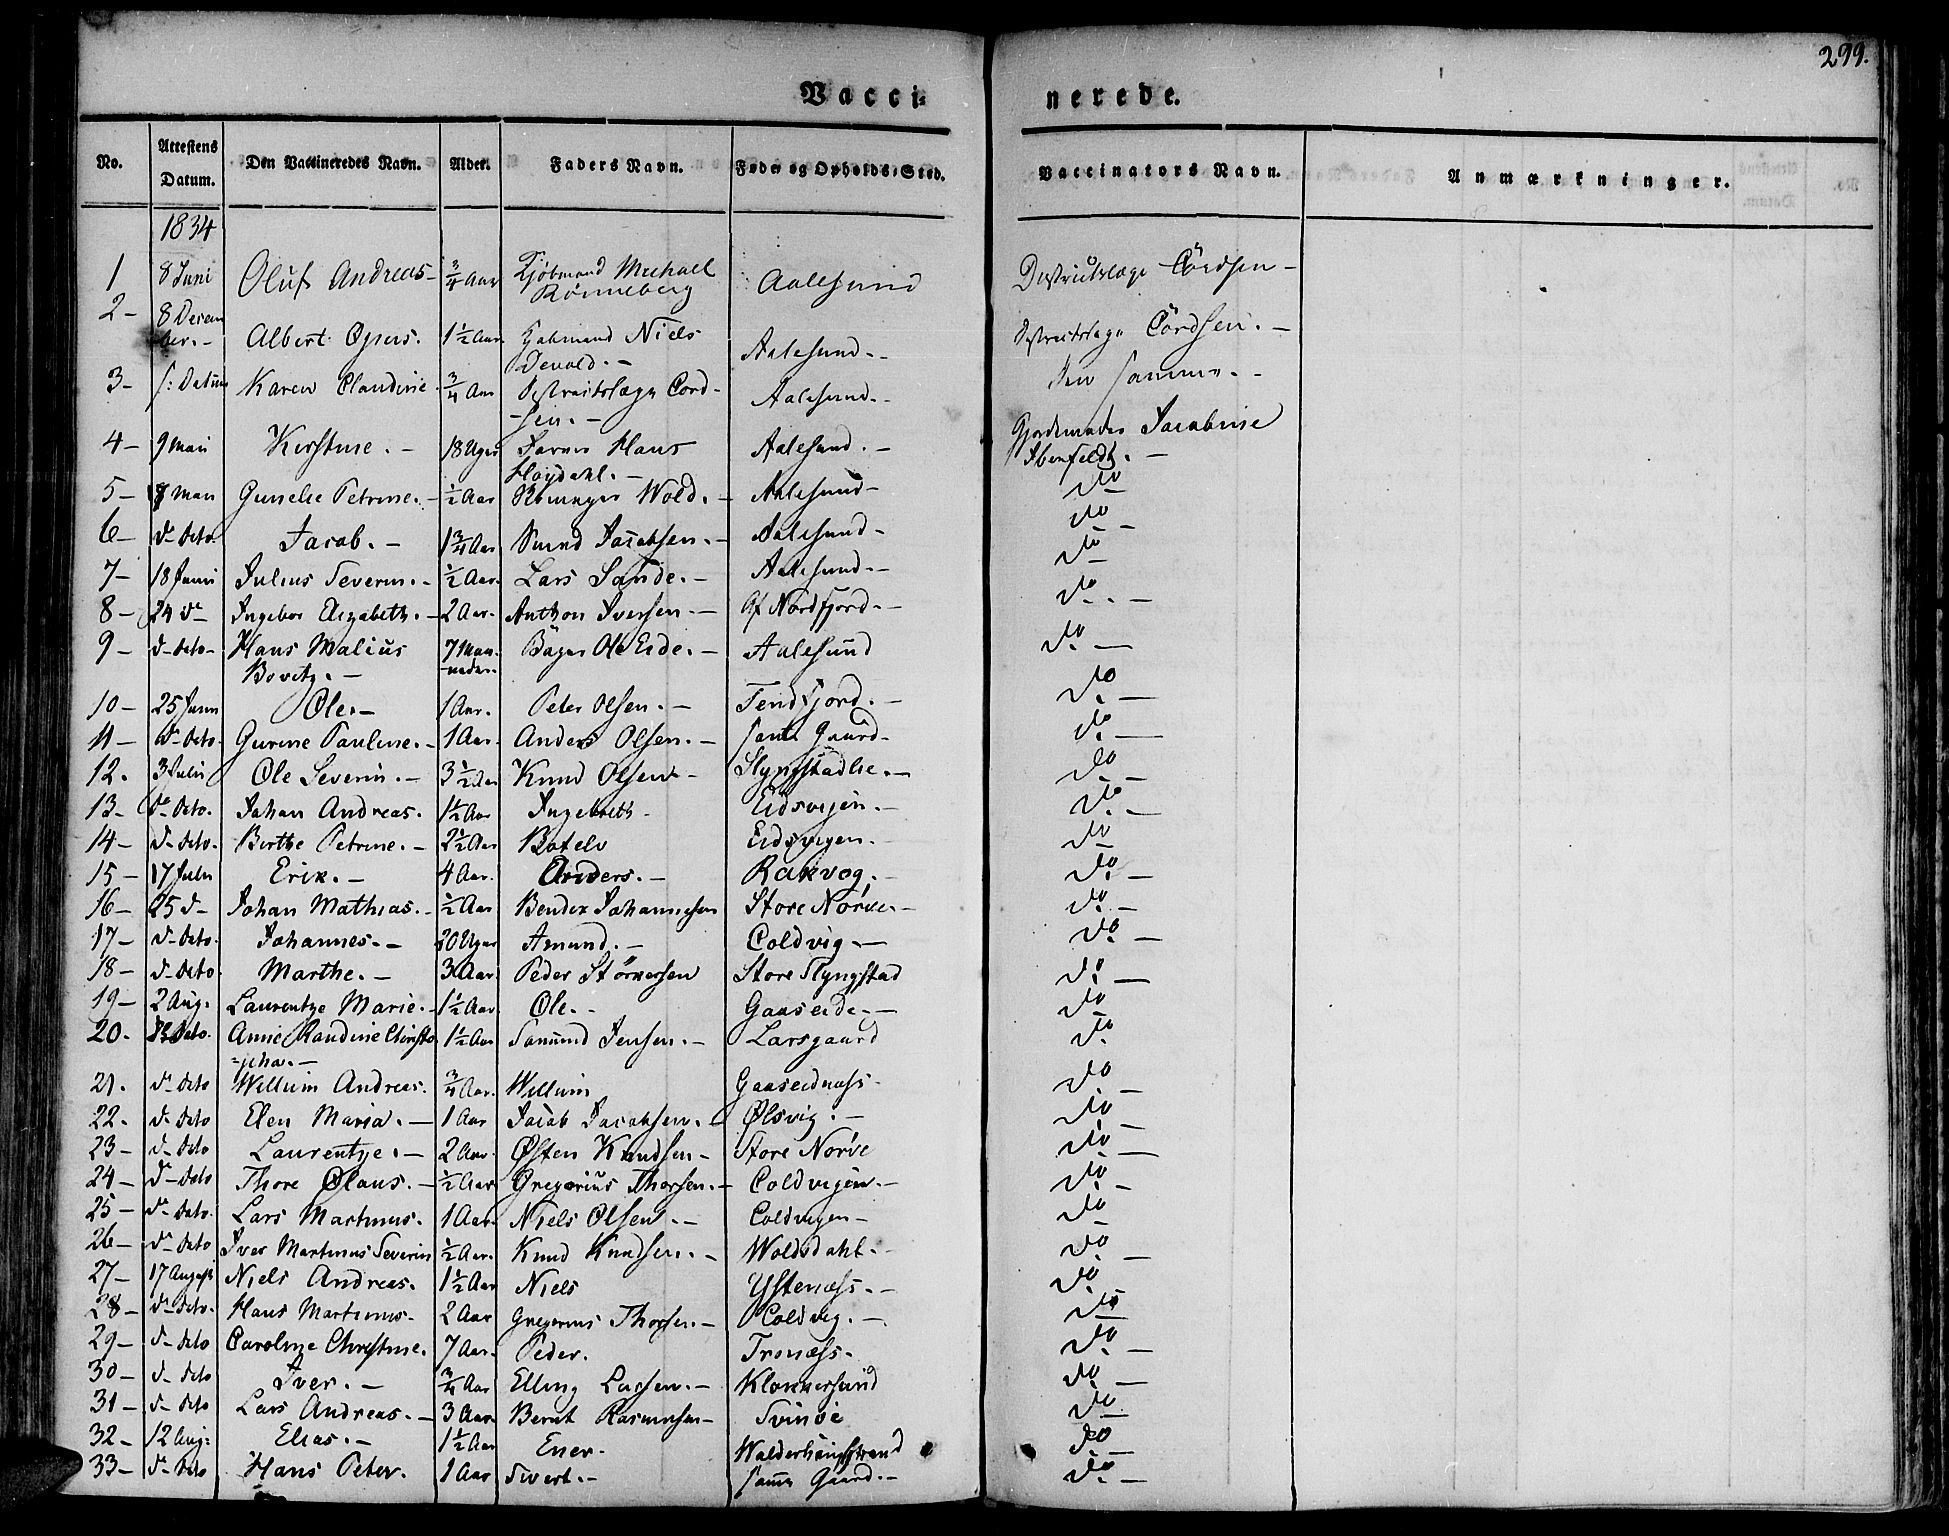 299.
Vacci-
nerede.
No. Attestens Datum. Den Vaccineredes Navn. Alder. Faders Navn. Føde og Opholds-Sted. Vaccinators Navn. Anmærkninger.
1834
1 8 Juni Oluf Andreas - 3/4 Aar Kjøbmand Michael Rønneberg Aalesund Districtslæge Cördsen -
2 - 8 Decem ber. - Albert Opius. 1 1/2 Aar Kjøbmand Niels Devold. - Aalesund. - Districtslæge Cördsen. -
3 - s: Datum Karen Claudine. 3/4 Aar Districtslæge Cord- -sen. - Aalesund. - den samme. -
4 - 9 Mai Kirstine. - 18 Uger Hans Høydahl. - Aalesund. - Gjordemoder Jacobine Ibenfeldt. -
5 - 18 Mai Gunelie Petrine. - 1/2 Aar Wold. - Aalesund - do
6 - d- dito. Jacob. - 1 3/4 Aar Svend Jacobsen. - Aalesund - do -
7 - 18 Juni Julius Severin. - 1/2 Aar. Lars Sande. - Aalesund. - do
8 - 24 d- Ingebor Elizabeth. - 2 Aar. Anthon Iversen - Af Nordfjord. - do. -
9 - d- dito - Hans Malius Bovitz. - 7 Maa- -neder. Ole Eide. - Aalesund do. -
10 - 25 Juni Ole. - 1 Aar. Peter Olsen. - Tendfjord. - do. -
11 - d- dito. Gurine Pauline. - 1 Aar. Anders Olsen. - samme Gaard - do. -
12. 3 Juli Ole Severin. - 3 1/2 Aar Knud Olsen - Slyngstadlie. - do. -
13 - d- dito. Johan Andreas. 1 1/2 Aar Ingebreth - Eidsvigen. - do. -
14 - d- dito. Birthe Petrine. - 2 1/2 Aar Botelv Eidsvigen. - do
15 - 17 Juli Erik. - 4 Aar. Anders. - Rakvog. - do. -
16 - 25 d- Johan Mathias. - 1/2 Aar Bendix Johannesen Store Nørve. - do. -
17 - d- dito. Johannes. - 20 Uger Amund. - Coldvig. - do -
18 - d- dito. Marthe. - 3 Aar. Peder Størkersen Store Slyngstad do. -
19 - 2 Aug. Laurentze Marie. - 1 1/2 Aar Ole. - Gaaseide. - do -
20. d- dito. Anne Randine Christo =pha. - 1 1/2 Aar Samund Jensen. - Larsgaard do.
21. d- dito Willum Andreas. 3/4 Aar. Willum Gaaseidnæss - do -
22. d- dito Elen Maria. - 1 Aar Jacob Jacobsen. - Ølsvig. - do. -
23 - d- dito Laurentze. - 2 Aar. Østen Knudsen - Store Nørve do. -
24 - d- dito Thore Olaus. - 1/2 Aar Gregorius Thorsen. - Coldvigen. - do. -
25 - d- dito. Lars Martinus. 1 Aar. Niels Olsen. - Coldvigen - do -
26 - d- dito Iver Martinus Severin 1/2 Aar. Knud Knudsen. - Woldsdahl. - do. -
27 - 17 August Niels Andreas. 1 1/2 Aar Niels Ystenæss. - do.
28 - d- dito. Hans Martinus. 2 Aar Gregorius Thorsen. - Coldvig. - do
29 - d- dito Caroline Christine. 7 Aar. Peder. Tronæss. do. -
30 - d- dito Iver. - 3/4 Aar Elling Larsen. - Klokkersund do. -
31 - d- dito Lars Andreas. - 3 Aar. Bernt Rasmussen - Svinøe do
32 - 12 Aug: Elias. - 1 1/2 Aar Ener. Walderhaugstrand do -
33 - d- dito Hans Peter. 1 Aar Sivert. - samme Gaard. - do. -